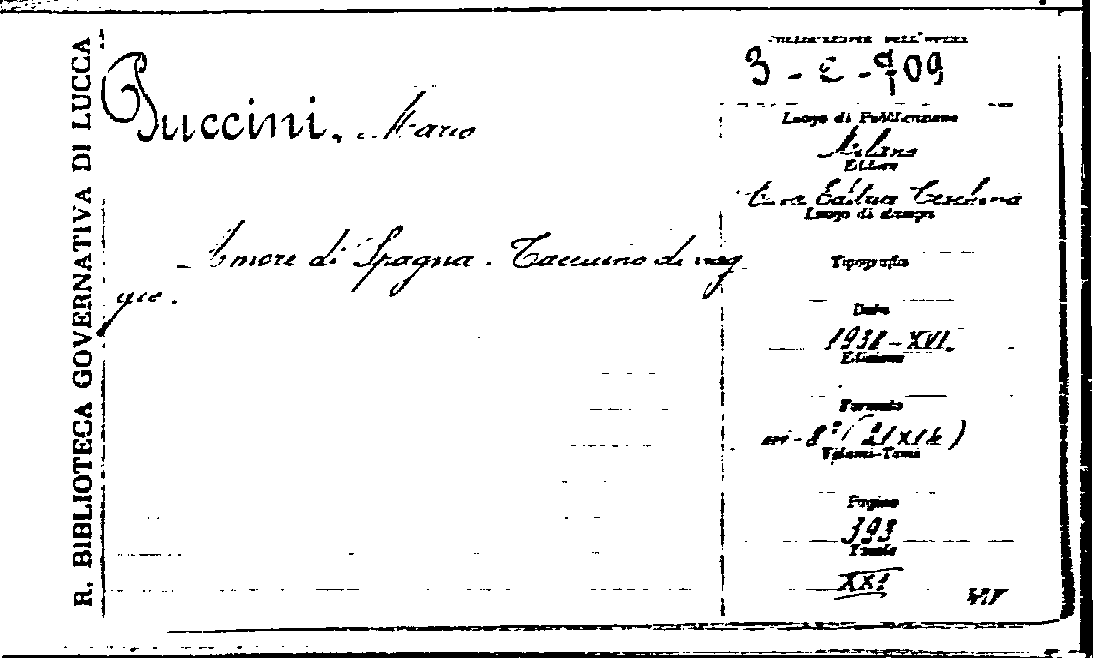 R. BIBLIOTECA GOVERNATIVA DI LUCCA
Puccini, Mario
- Amore di Spagna. Taccuino di viag
gio.
COLLOCAZIONE DELL'OPERA
Luogo di Pubblicazione
Milano
Editore
Casa Editrice Ceschina
Luogo di stampa
Tipografia
Data
1938-XVI.
Edizione
Formato
in-8° (21x14)
Volumi-Tomi
Pagine
393
Fondo
XXI